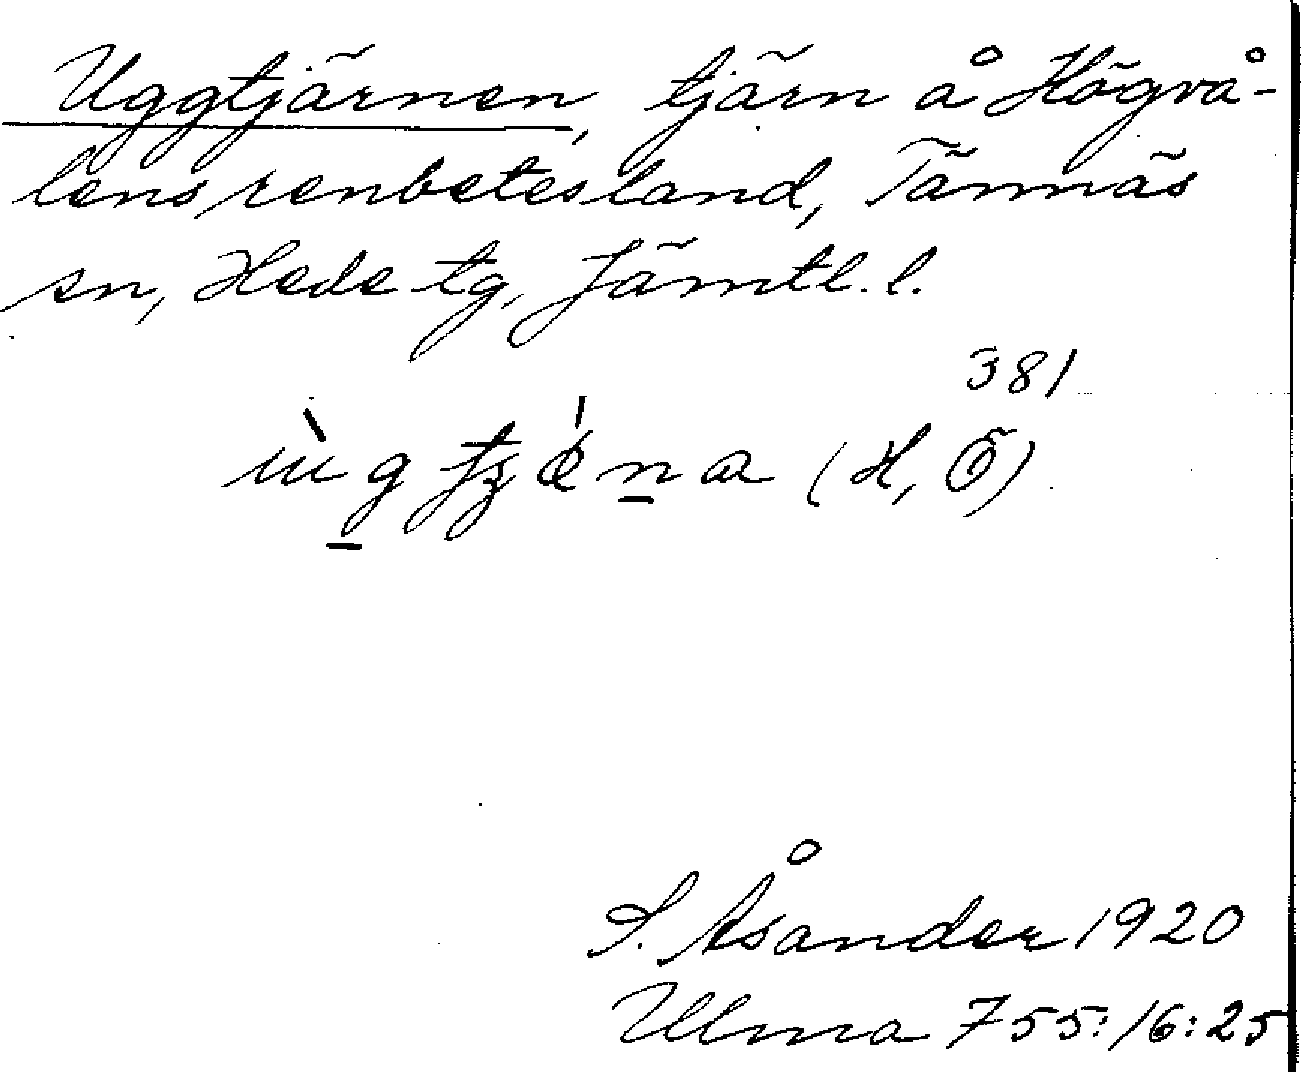 Uggtjärnen, tjärn å Högvå-
lens renbetesland, Tännäs
sn, Hede tg, Jämtl. l.
381
(H, Ö)
S. Åsander 1920
Ulma 755:16:25